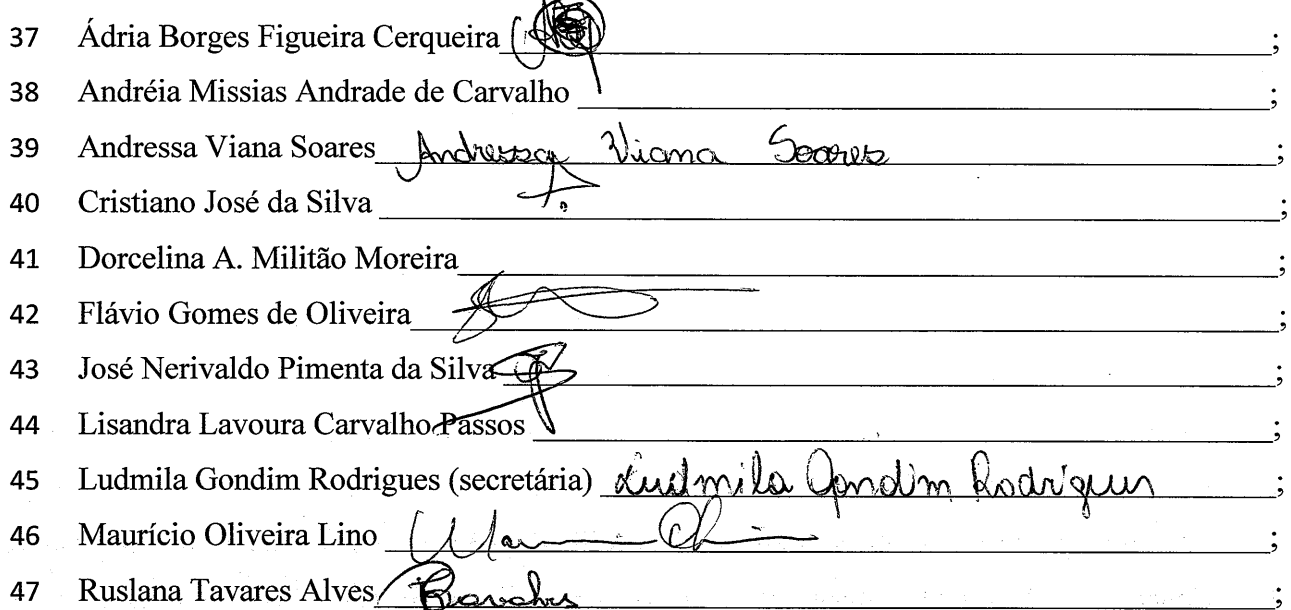 37 Ádria Borges Figueira Cerqueira ;
38 Andréia Missias Andrade de Carvalho ;
39 Andressa Viana Soares Andressa Viana Soares ;
40 Cristiano José da Silva ;
41 Dorcelina A. Militão Moreira ;
42 Flávio Gomes de Oliveira ;
43 José Nerivaldo Pimenta da Silva ;
44 Lisandra Lavoura Carvalho Passos ;
45 Ludmila Gondim Rodrigues (secretária) Ludmila Gondim Rodrigues ;
46 Maurício Oliveira Lino ;
47 Ruslana Tavares Alves ;